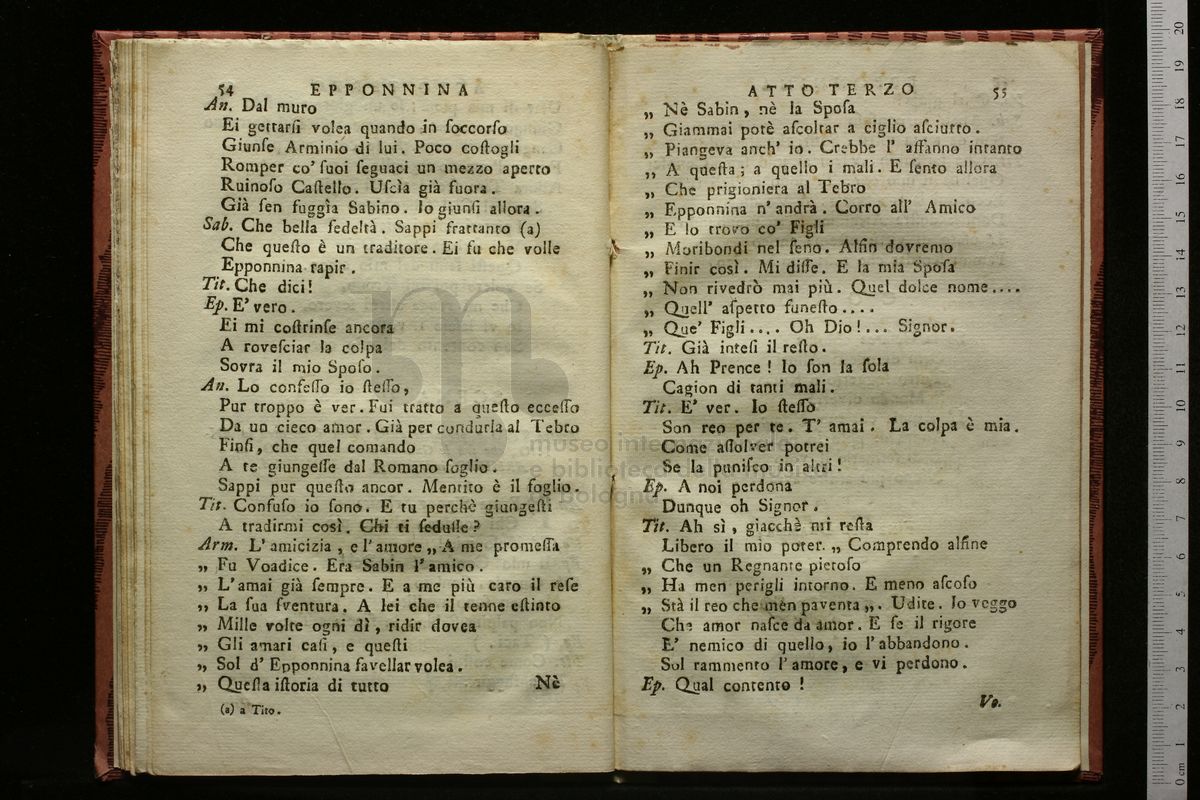 54 EPPONNINA
An. Dal muro
Ei gettarſi volea quando in ſoccorſo
Giunſe Arminio di lui. Poco coſtogli
Romper co' ſuoi ſeguaci un mezzo aperto
Ruinoſo Caſtello. Uſcìa già fuora.
Già ſen fuggìa Sabino. Io giunſi allora.
Sab. Che bella fedeltà. Sappi frattanto (a)
Che queſto è un traditore. Ei fu che volle
Epponnina rapir.
Tit. Che dici!
Ep. E' vero.
Ei mi coſtrinſe ancora
A roveſciar la colpa
Sovra il mio Spoſo.
An. Lo confeſſo io ſteſſo,
Pur troppo è ver. Fui tratto a queſto ecceſſo
Da un cieco amor. Già per condurla al Tebro
Finſi, che quel comando
A te giungeſſe dal Romano ſoglio.
Sappi pur queſto ancor. Mentito è il foglio.
Tit. Confuſo io ſono. E tu perchè giungeſti
A tradirmi così. Chi ti ſeduſſe?
Arm. L'amicizia, e l'amore „ A me promeſſa
„ Fu Voadice. Era Sabin l'amico.
„ L'amai già ſempre. E a me più caro il reſe
„ La ſua ſventura. A lei che il tenne eſtinto
„ Mille volte ogni dì, ridir dovea
„ Gli amari caſi, e queſti
„ Sol d'Epponnina favellar volea.
„ Queſta iſtoria di tutto Nè
(a) a Tito.
ATTO TERZO 55
„ Nè Sabin, nè la Spoſa
„ Giammai potè aſcoltar a ciglio aſciutto.
„ Piangeva anch' io. Crebbe l' affanno intanto
„ A queſta; a quello i mali. E ſento allora
„ Che prigioniera al Tebro
„ Epponnina n'andrà. Corro all' Amico
„ E lo trovo co' Figli
„ Moribondi nel ſeno. Alfin dovremo
„ Finir così. Mi diſſe. E la mia Spoſa
„ Non rivedrò mai più. Quel dolce nome....
„ Quell' aſpetto funeſto....
„ Que' Figli.... Oh Dio!... Signor.
Tit. Già inteſi il reſto.
Ep. Ah Prence! Io ſon la ſola
Cagion di tanti mali.
Tit. E' ver. Io ſteſſo
Son reo per te. T' amai. La colpa è mia.
Come aſſolver potrei
Se la puniſco in altri!
Ep. A noi perdona
Dunque oh Signor.
Tit. Ah sì, giacchè mi reſta
Libero il mio poter. „ Comprendo alfine
„ Che un Regnante pietoſo
„ Ha men perigli intorno. E meno aſcoſo
„ Stà il reo che men paventa „. Udite. Io veggo
Che amor naſce da amor. E ſe il rigore
E' nemico di quello, io l'abbandono.
Sol rammento l'amore, e vi perdono.
Ep. Qual contento!
Vo.
museo internazionale
e biblioteca della musica
di bologna